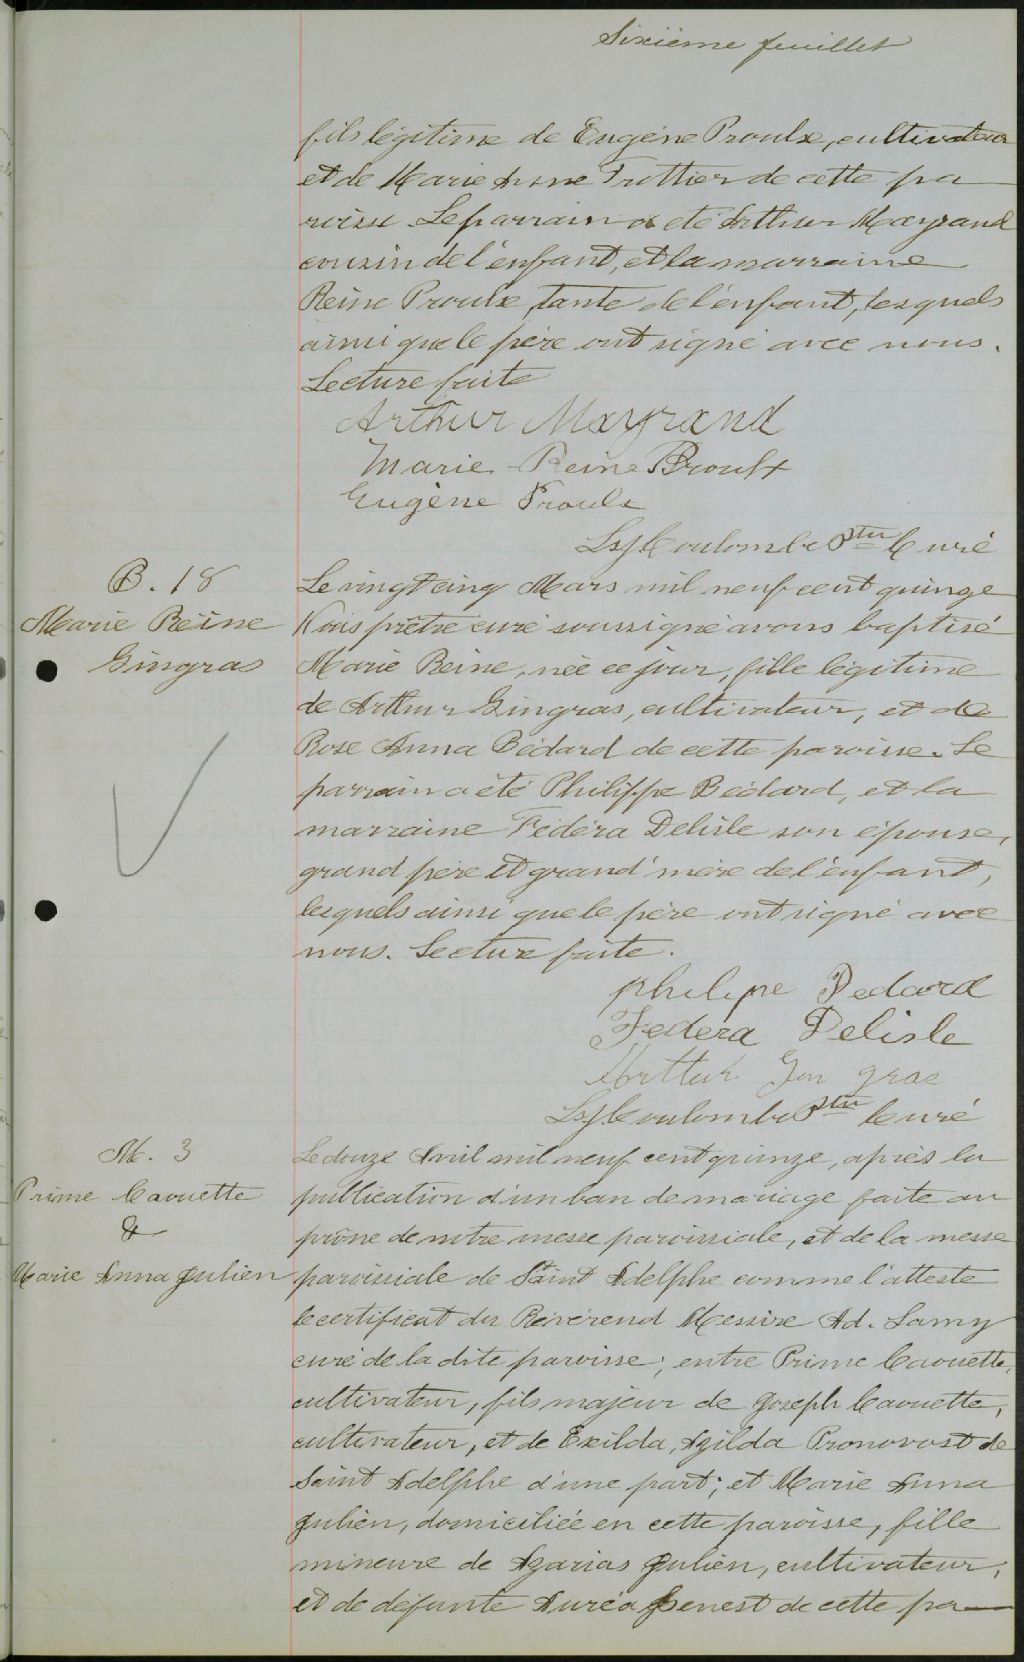 Sixième feuillet
fils légitime de Eugène Proulx, cultivateur
et de Marie Anne Trottier de cette pa
roisse. Le parrain a été Arthur Mayrand
cousin de l'enfant, et la marraine
Reine Proulx, tante de l'enfant, lesquels
ainsi que le père ont signé avec nous.
Lecture faite
Arthur Mayrand
Marie-Reine Proulx
Eugène Proulx
Coulombe Ptre Curé
B. 18
Marie Reine
Gingras
Le vingt cinq Mars mil neuf cent quinze
Nous prêtre curé soussigné avons baptisé
Marie Reine, née ce jour, fille légitime
de Arthur Gingras, cultivateur, et de
Rose Anna Bédard de cette paroisse. Le
parrain a été Philippe Bédard, et la
marraine Fédéra Delisle son épouse,
grand père et grand'mère de l'enfant,
lesquels ainsi que le père ont signé avec
nous. Lecture faite.
Philipe Bedard
Federa Delisle
Arttur Gin gras
Coulombe Ptre Curé
M. 3
Prime Caouette
&
Marie Anna Julien
Le douze Avril mil neuf cent quinze, après la
publication d'un ban de mariage faite au
prône de notre messe paroissiale, et de la messe
paroissiale de Saint Adelphe comme l'atteste
le certificat du Révérend Messire Ad. Lamy
curé de la dite paroisse; entre Prime Caouette,
cultivateur, fils majeur de Joseph Caouette,
cultivateur, et de Exilda, Azilda Pronovost de
Saint Adelphe d'une part; et Marie Anna
Julien, domiciliée en cette paroisse, fille
mineure de Azarias Julien, cultivateur,
et de défunte Auréa Genest de cette pa